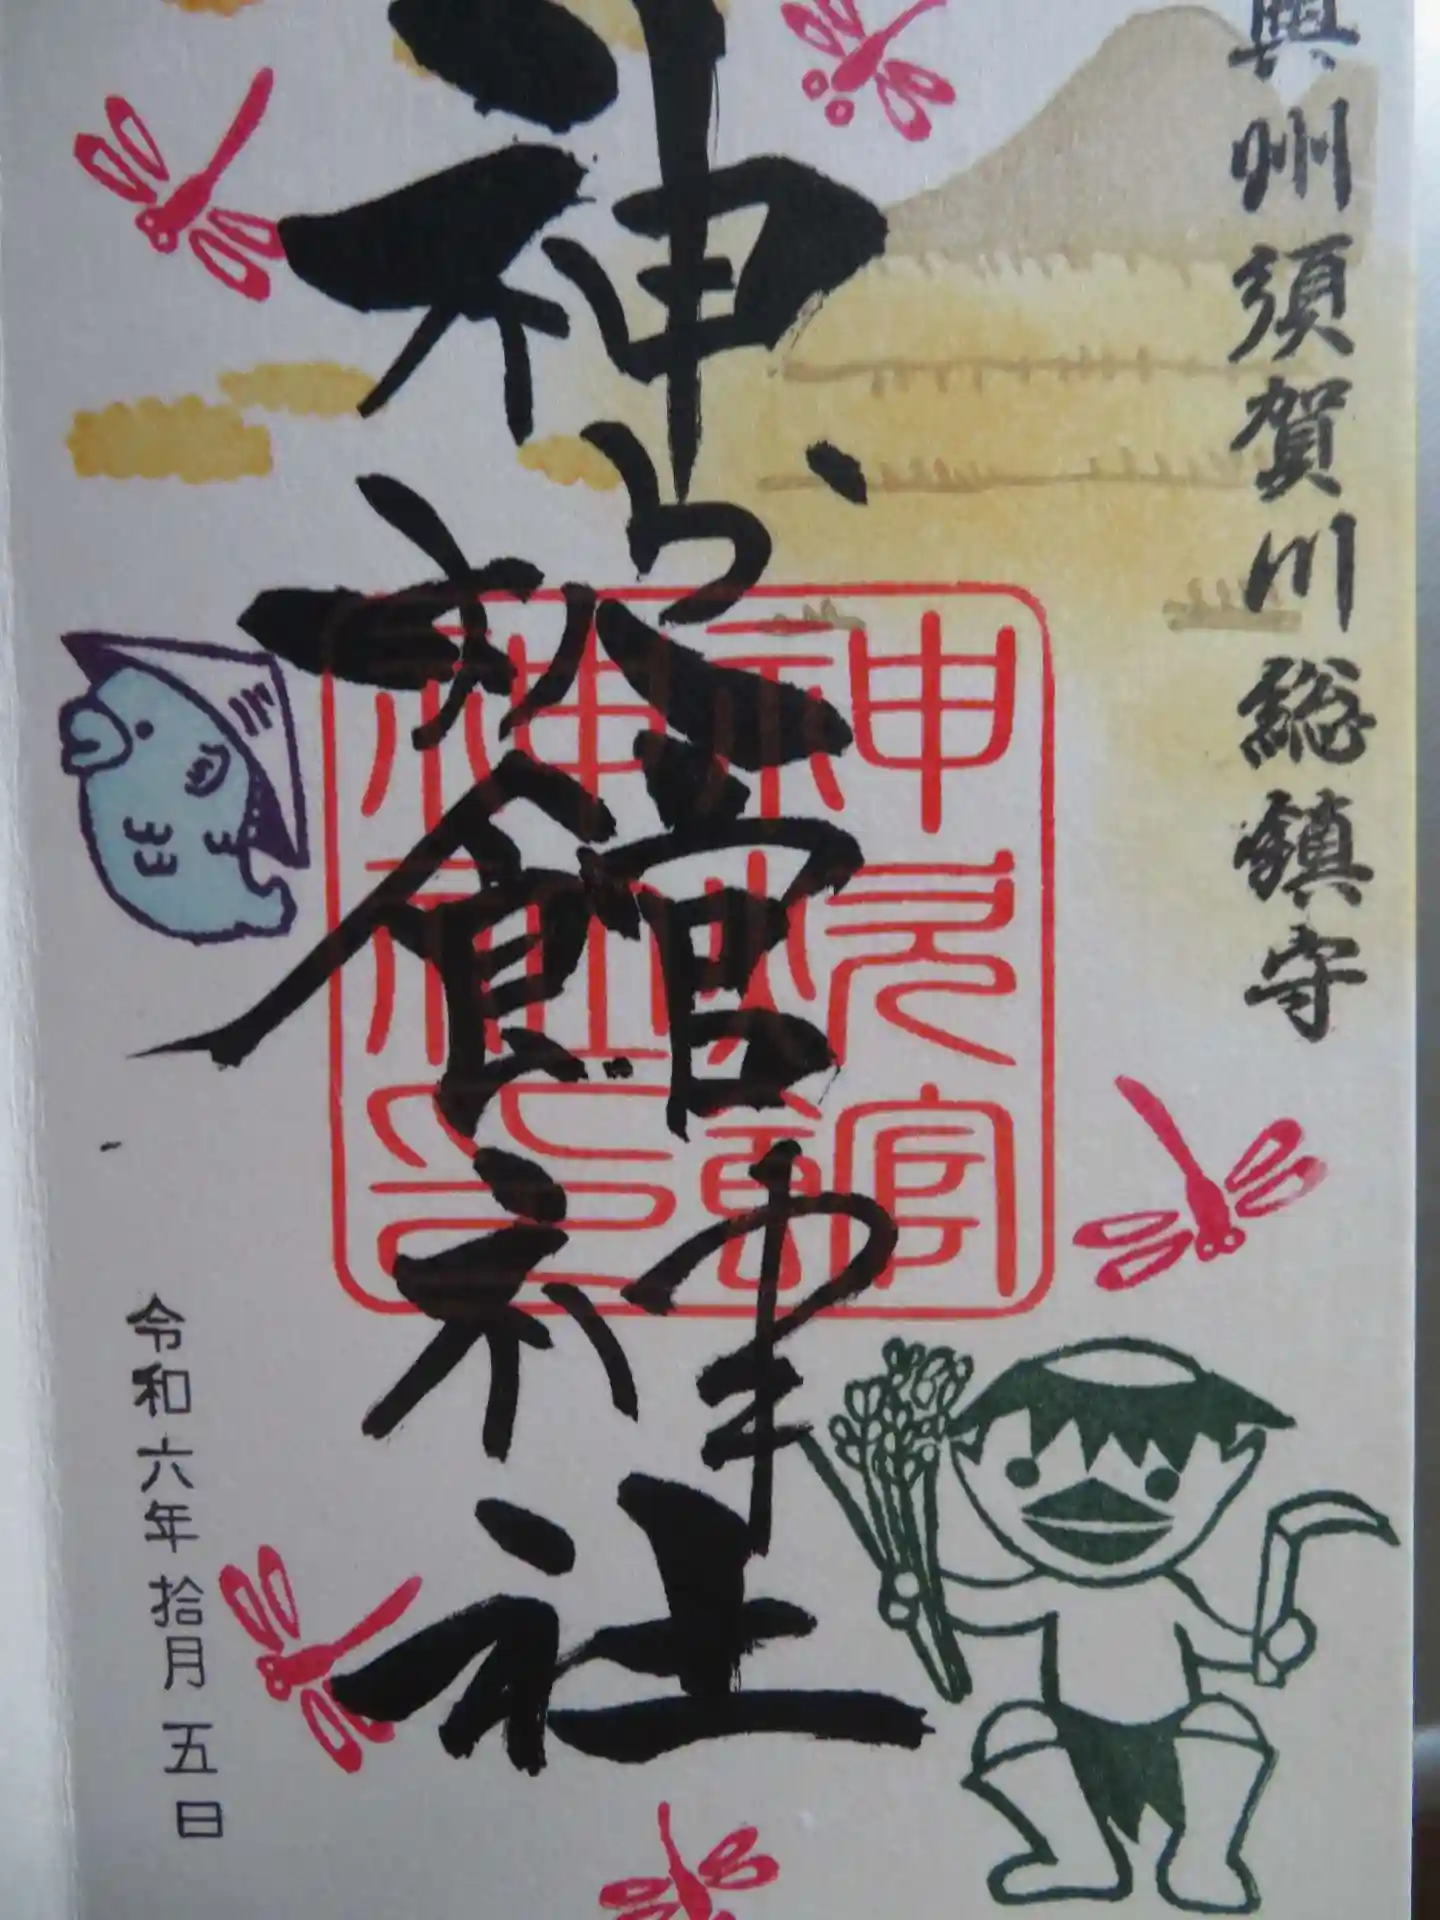 奥州須賀川総鎮守
神炊館神社
神炊館
神社印
令和六年拾月五日